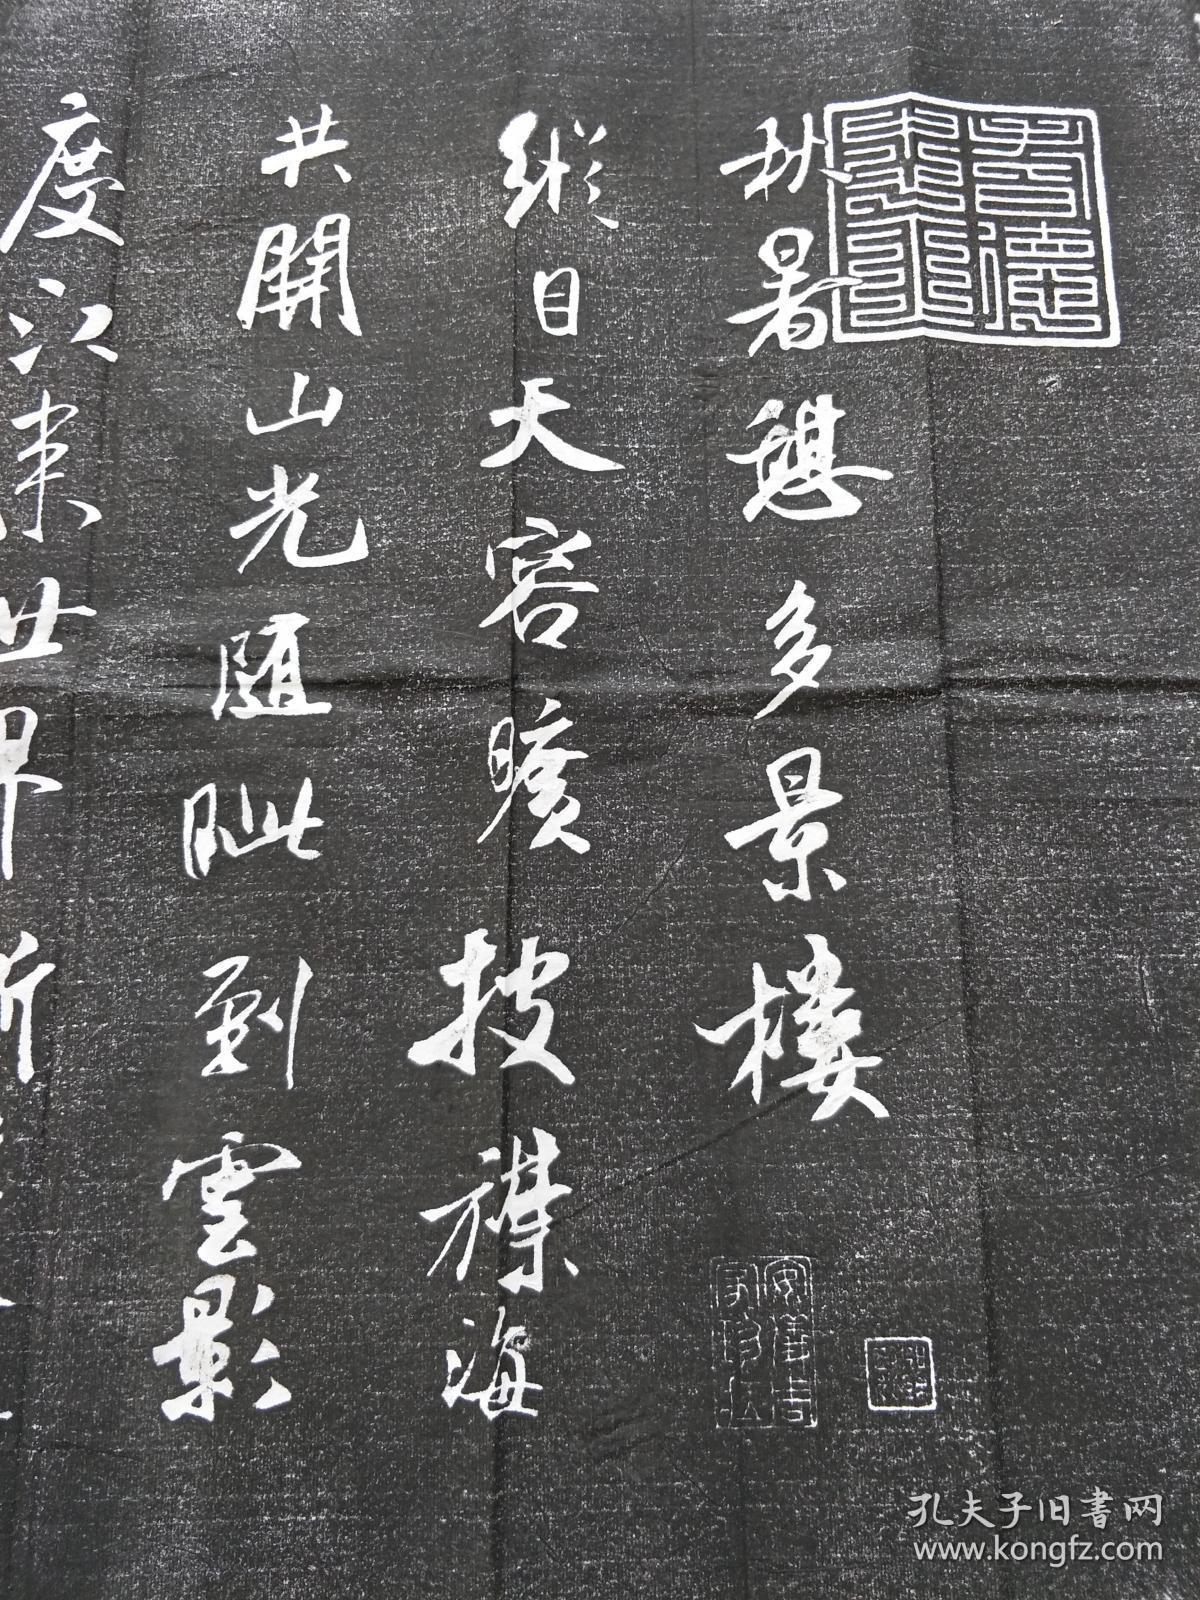 秋暑憩多景楼
縱目天容曠披襟海
共開山光隨眦到雲影
度江來世界
孔夫子旧書网
www.kongfz.com